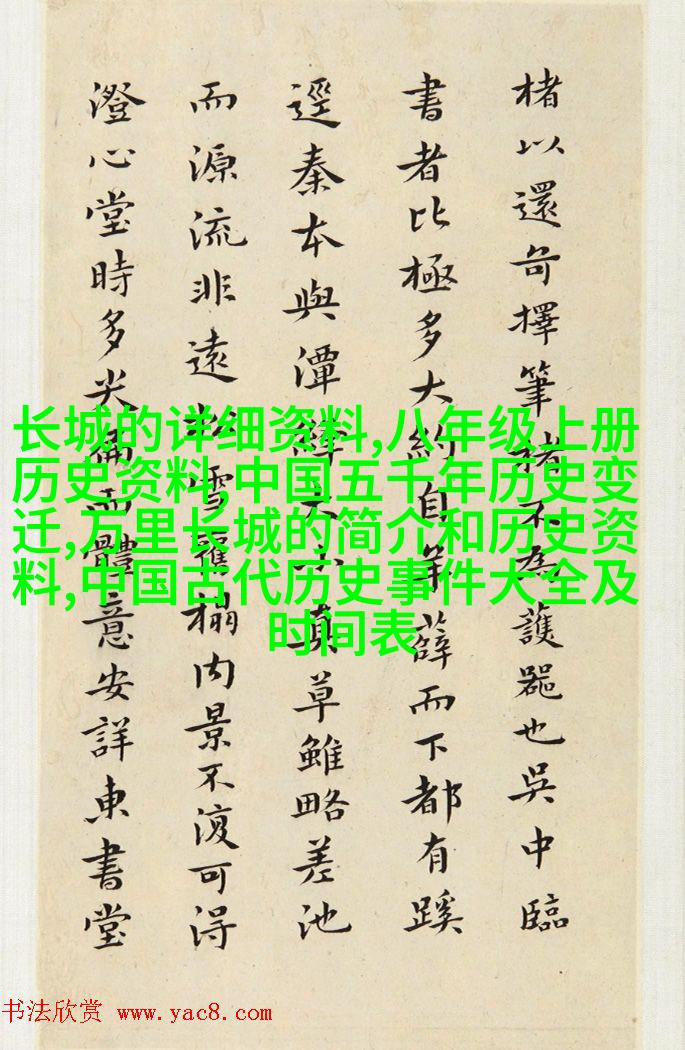 楮以還奇擇筆楮不為護惡也吳中臨
書者比極多大約自年薛而下都有蹊
逕秦本與潭絳大小真草雖略差池
而源流非遠松雪舊榻內景不復可得
澄心堂時多尖偏而體意安詳東書堂
长城的详细资料,八年级上册
历史资料,中国五千年历史变
迁,万里长城的简介和历史资
料,中国古代历史事件大全及
时间表
书法欣赏 www.yac8.com